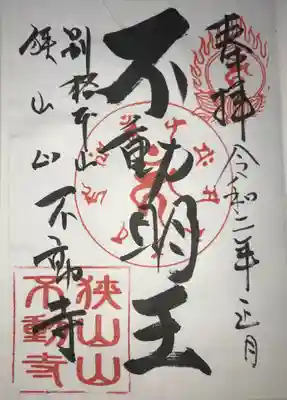 奉拝
令和二年正月
不動明王
別格本山
狭山山
不動寺
狭山山
不動寺